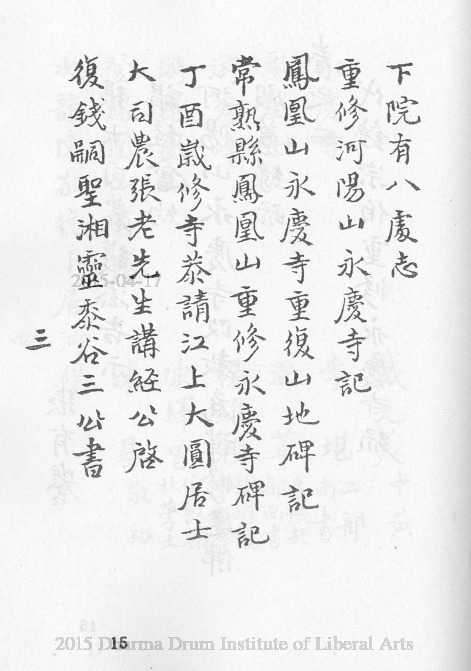 下院有八處志
重修河陽山永慶寺記
鳳凰山永慶寺重復山地碑記
常熟縣鳳凰山重修永慶寺碑記
丁酉歲修寺恭請江上大圓居士
大司農張老先生講經公啓
復錢嗣聖湘靈黍谷三公書
三
2015-04-17
15
2015 Dharma Drum Institute of Liberal Arts